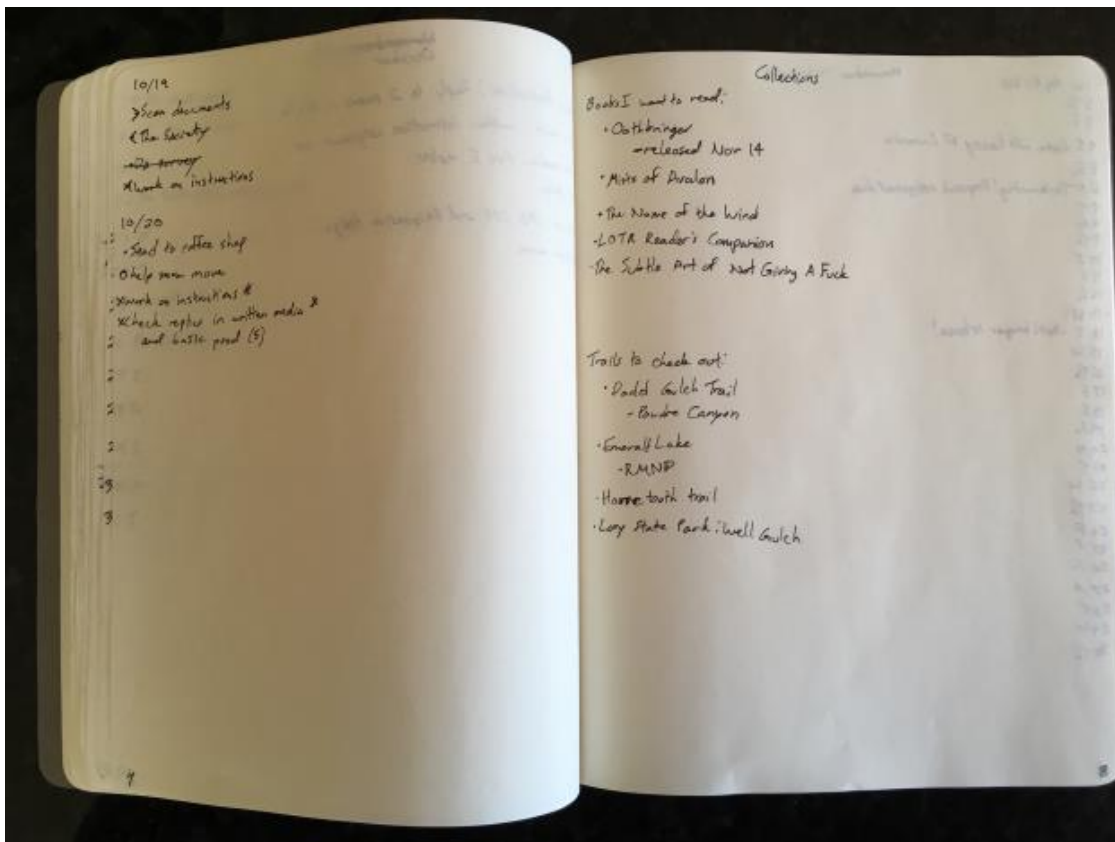 10/19
>Scan documents
<The Society
•Do survey
×Work on instructions
10/20
•Send to coffee shop
O help mom move
×Work on instructions *
×Check replies in written media *
and basic prod (5)
Collections
Books I want to read:
•Oathbringer
-released Nov 14
•Mists of Avalon
•The Name of the Wind
•LOTR Reader's Companion
•The Subtle Art of Not Giving A Fuck
Trails to check out:
•Dadd Gulch Trail
-Poudre Canyon
•Emerald Lake
-RMNP
•Horsetooth trail
•Lory State Park: Well Gulch